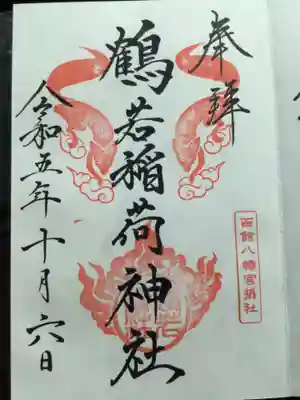 奉拝
鶴若稲荷神社
令和五年十月六日
函館八幡宮末社